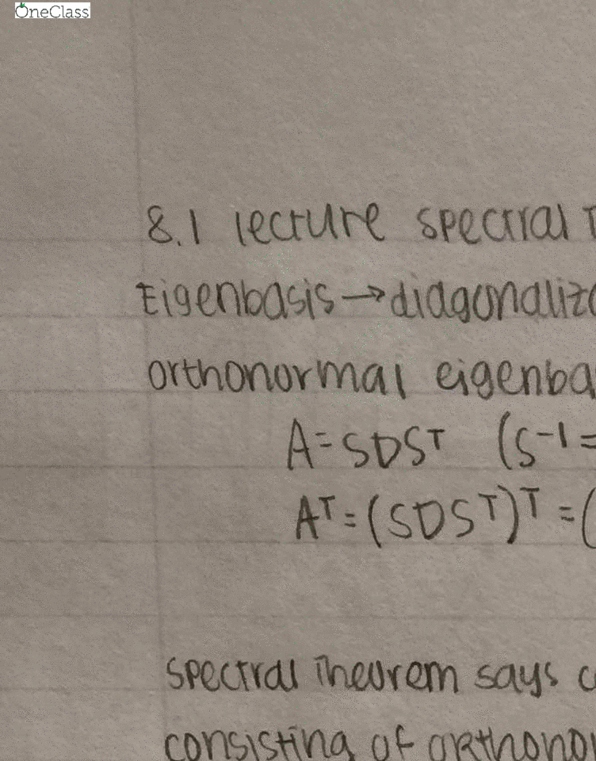 OneClass
8.1 lecture spectral T
Eigenbasis→diagonaliza
orthonormal eigenba
A=SDSᵀ (S⁻¹=
Aᵀ=(SDSᵀ)ᵀ=(
spectral Theorem says
consisting of orthono